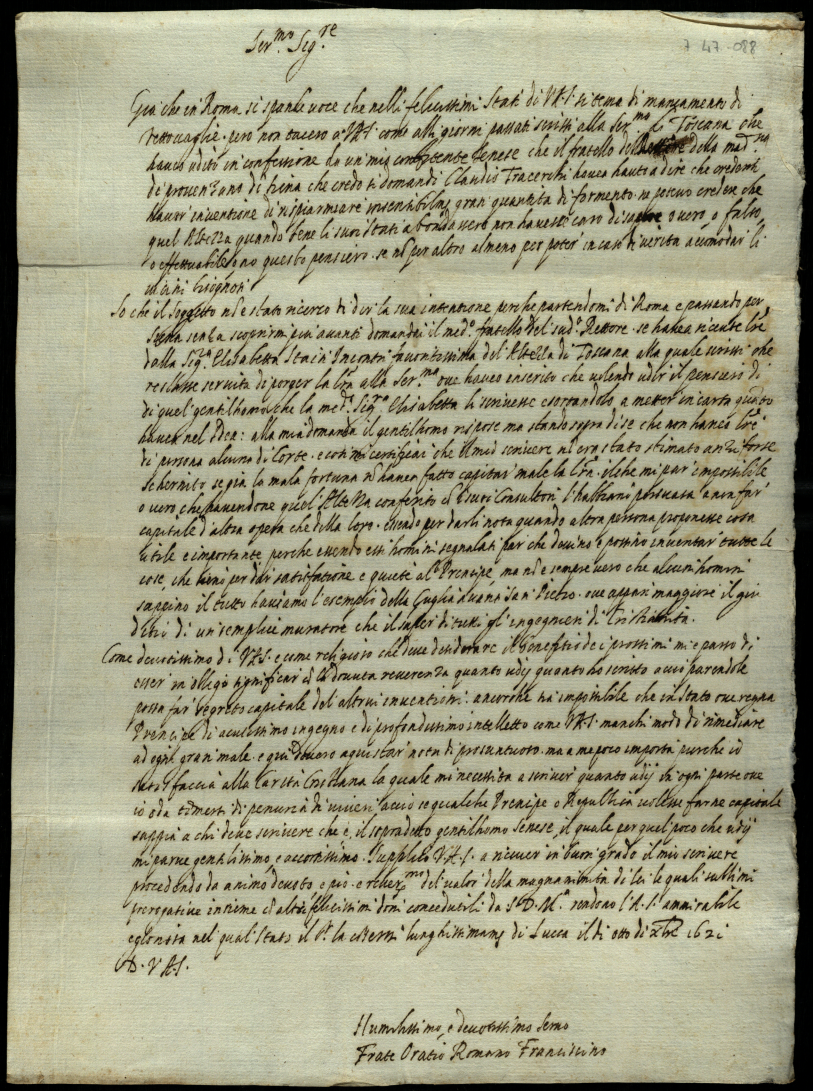 Ser.mo Sig.re
7 47 - 088
Già che in Roma si spande voce che nelli felicissimi Stati di V.A.S. si tema di mancamento di
vettovaglie, però non tacerò a V.A.S. come alli giorni passati scrissi alla Ser.ma di Toscana che
havevo udito in confessione da un mio Senese che il fratello del Rettore della mad.na
di provenzano di Siena che credo si domandi Claudio havea hauto a dire che
haver inventione di risparmiare insensibilm. gran quantità di formento ne potevo credere che
quel Altezza quando bene li suoi stati abondassero non havesse caro di o vero, o falso,
o effettuabile o no questo pensiero. se nō per altro almeno per poter in caso di verità acomodar li
vicini bisognosi
So che il Soggetto nō è stato ricerco di dir la sua intentione perche partendomi di Roma e passando per
Siena senza scoprirmi più avanti domandai il med.o fratello del sud.o Rettore se havea ricevute lrē
dalla Sig.ra Elisabetta favoritissima del Altezza di Toscana alla quale scrissi che
restasse servita di porger la lrā alla Ser.ma ove havevo inserito che volendo udir il pensiero di
di quel gentilhomo che la med. Sig.ra Elisabetta li scrivesse esortandolo a metter in carta quāto
havea nel Idea: alla mia domanda il gentilhomo rispose ma stando sopra di se che non havea lrē
di persona alcuna di Corte. e così mi certificai che il mio scrivere nō era stato stimato anzi forse
schernito se già la mala fortuna nō havea fatto capitar male la lrā. ilche mi par impossibile
o vero, che havendone quel Altezza conferito cō i suoi Consultori l'habbiano persuasa a non far
capitale d'altra opera che della loro. essendo per darli nota quando altra persona proponesse cosa
utile e importante perche essendo essi homini segnalati par che devino e possino inventar tutte le
cose, che per dar satisfatione e quiete al Prencipe, ma nō è sempre vero che alcuni homini
sappino il tutto haviamo l'esempio della Guglia avanti san Pietro. ove apparì maggiore il giu
ditio di un semplice muratore che il saper di tutti gl'ingegnieri di Cristianità.
Come devotissimo di V.A.S. e come religioso che deve desiderare il benefitio de i prossimi mi è parso di
esser in obligo significar cō la dovuta reverenza quanto udij quanto ho scritto acciò parendole
possa far segreto capitale del altrui inventioni. ancorche sia impossibile che in stato ove regna
Principe di acutissimo ingegno e di profondissimo intelletto come V.A.S. manchi modo di rimediare
ad ogni gran male. e qui devero aquistar nota di presuntuoso. ma a me poco importa purche io
satisfaccia alla Carità Cristiana la quale mi necessita a scriver quanto udij in ogni parte ove
io oda temersi di penuria di viveri acciò se qualche Prencipe o Republica volesse farne capitale
sappia a chi deve scrivere che è, il sopradetto gentilhomo senese, il quale per quel poco che udij
mi parve gentilissimo e accortissimo. Supplico V.A.S. a ricever in buon grado il mio scrivere
procedendo da animo devoto e pio. e del valor della magnanimità di lei le quali sublimi
prerogative insieme cō altri felicissimi doni concedutili da S.D.M.a rendono l'A.S. ammirabile
e gloriosa nel qual stato il S.r la conservi lunghissimam.te di Lucca il dì otto di xbre 1621
D. V.A.S.
Humilissimo, e devotissimo servo
Frate Oratio Romano Francischino